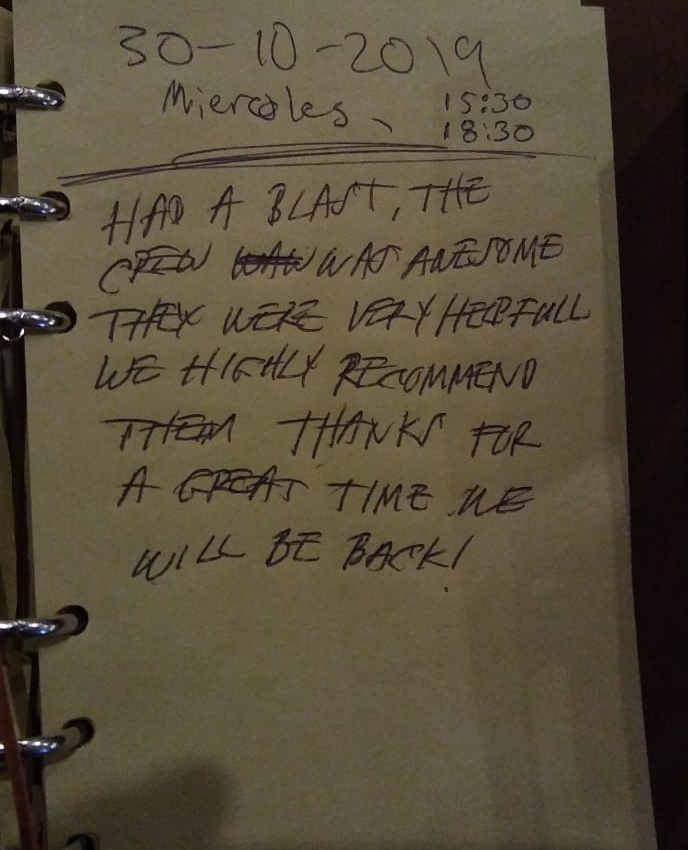 30-10-2019
Miercoles 15:30
18:30
HAD A BLAST, THE
CREW WAS AWESOME
THEY WERE VERY HELPFULL
WE HIGHLY RECOMMEND
THEM THANKS FOR
A GREAT TIME WE
WILL BE BACK!